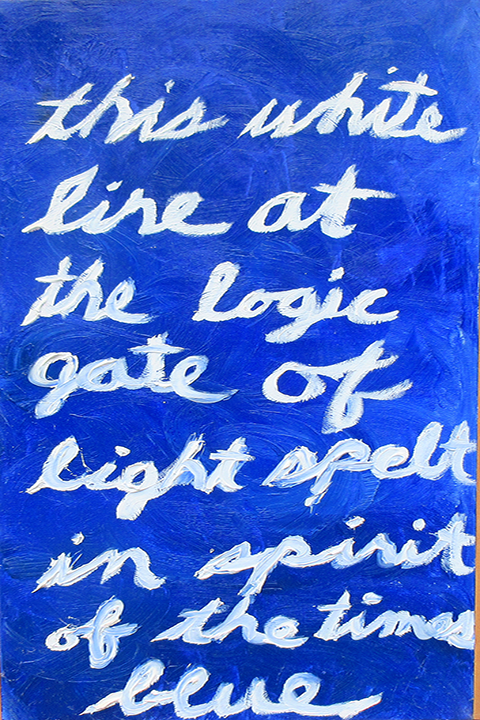 this white
line at
the logic
gate of
light spelt
in spirit
of the times
blue